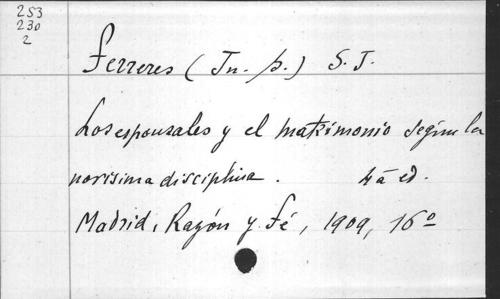 253
230
2
Ferreres (Jn. B.) S. J.
Los esponsales y el matrimonio según la
novísima disciplina. 4ª ed.
Madrid, Razón y Fé, 1909, 16º